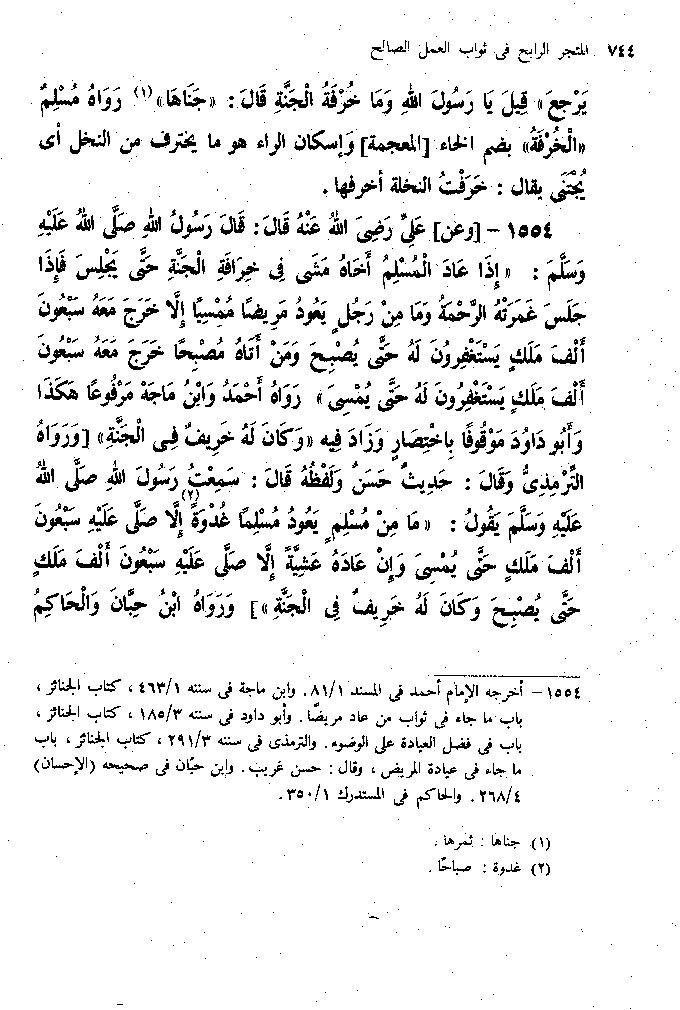 ٧٤٤ المتجر الرابح فى ثواب العمل الصالح
يَرْجِعَ» قِيلَ يَا رَسُولَ اللهِ وَمَا خُرْفَةُ الْجَنَّةِ قَالَ : «جَنَاهَا» (١) رَوَاهُ مُسْلِمٌ
«الْخُرْفَةُ» بضم الخاء [المعجمة] وَإسكان الراء هو ما يخترف من النخل أى
يُجْتَنَى يقال : خَرَفْتُ النخلة أخرفها .
١٥٥٤ - [وعن] عَلِىٍّ رَضِىَ اللهُ عَنْهُ قَالَ : قَالَ رَسُولُ اللهِ صَلَّى اللهُ عَلَيْهِ
وَسَلَّمَ : «إِذَا عَادَ الْمُسْلِمُ أَخَاهُ مَشَى فِى خِرَافَةِ الْجَنَّةِ حَتَّى يَجْلِسَ فَإِذَا
جَلَسَ غَمَرَتْهُ الرَّحْمَةُ وَمَا مِنْ رَجُلٍ يَعُودُ مَرِيضًا مُمْسِيًا إِلَّا خَرَجَ مَعَهُ سَبْعُونَ
أَلْفَ مَلَكٍ يَسْتَغْفِرُونَ لَهُ حَتَّى يُصْبِحَ وَمَنْ أَتَاهُ مُصْبِحًا خَرَجَ مَعَهُ سَبْعُونَ
أَلْفَ مَلَكٍ يَسْتَغْفِرُونَ لَهُ حَتَّى يُمْسِىَ» رَوَاهُ أَحْمَدُ وَابْنُ مَاجَهْ مَرْفُوعًا هَكَذَا
وَأَبُو دَاوُدَ مَوْقُوفًا بِاخْتِصَارٍ وَزَادَ فِيهِ «وَكَانَ لَهُ خَرِيفٌ فِى الْجَنَّةِ» [وَرَوَاهُ
التِّرْمِذِىُّ وَقَالَ : حَدِيثٌ حَسَنٌ وَلَفْظُهُ قَالَ : سَمِعْتُ رَسُولَ اللهِ صَلَّى اللهُ
عَلَيْهِ وَسَلَّمَ يَقُولُ : «مَا مِنْ مُسْلِمٍ يَعُودُ مُسْلِمًا غُدْوَةً (٢) إِلَّا صَلَّى عَلَيْهِ سَبْعُونَ
أَلْفَ مَلَكٍ حَتَّى يُمْسِىَ وَإِنْ عَادَهُ عَشِيَّةً إِلَّا صَلَّى عَلَيْهِ سَبْعُونَ أَلْفَ مَلَكٍ
حَتَّى يُصْبِحَ وَكَانَ لَهُ خَرِيفٌ فِى الْجَنَّةِ»] وَرَوَاهُ ابْنُ حِبَّانَ وَالْحَاكِمُ
١٥٥٤ - أخرجه الإمام أحمد فى المسند ٨١/١. وابن ماجة فى سننه ٤٦٣/١ ، كتاب الجنائز ،
باب ما جاء فى ثواب من عاد مريضًا. وأبو داود فى سننه ١٨٥/٣ ، كتاب الجنائز ،
باب فى فضل العيادة على الوضوء. والترمذى فى سننه ٢٩١/٣ ، كتاب الجنائز ، باب
ما جاء فى عيادة المريض ، وقال : حسن غريب. وابن حبّان فى صحيحه (الإحسان)
٢٦٨/٤. والحاكم فى المستدرك ٣٥٠/١.
(١) جناها : ثمرها .
(٢) غدوة : صباحًا .